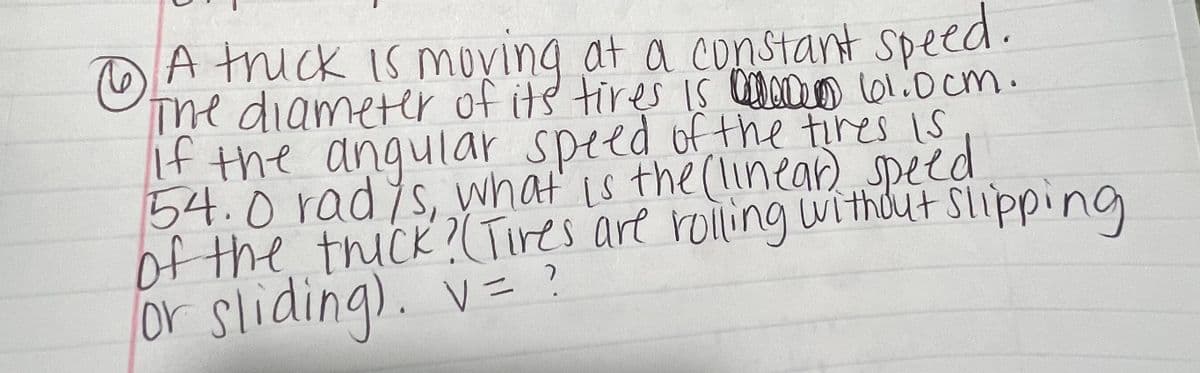 6 A truck is moving at a constant speed.
The diameter of its tires is 61.0cm.
if the angular speed of the tires is
54.0 rad/s, what is the (linear) speed
of the truck? (Tires are rolling without slipping
or sliding). v = ?